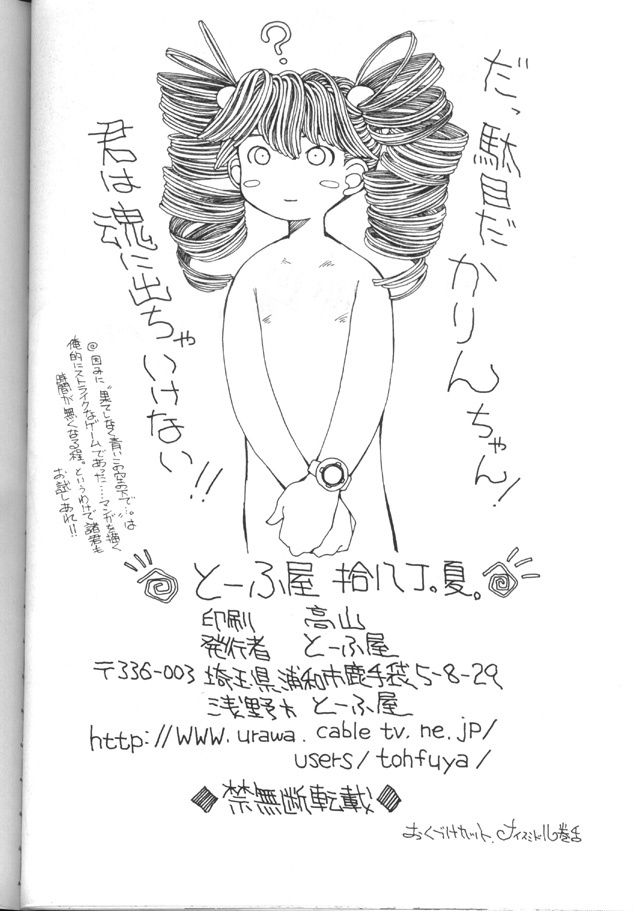 ?
だっ駄目だかりんちゃん!
君は魂に出ちゃいけない!!
@因みに〝果てしなく青いこの空の下で…。〟は
俺的にストライクなゲームであった……マンガを描く
時間が無くなる程。というわけで諸君も
お試しあれ!!
とーふ屋 拾八丁。夏。
印刷 高山
発行者 とーふ屋
〒336-003 埼玉県浦和市鹿手袋5-8-29
浅野方 とーふ屋
http://www.urawa.cabletv.ne.jp/
users/tohfuya/
◆禁無断転載◆
おくづけカット、ナイスミドル巻舌